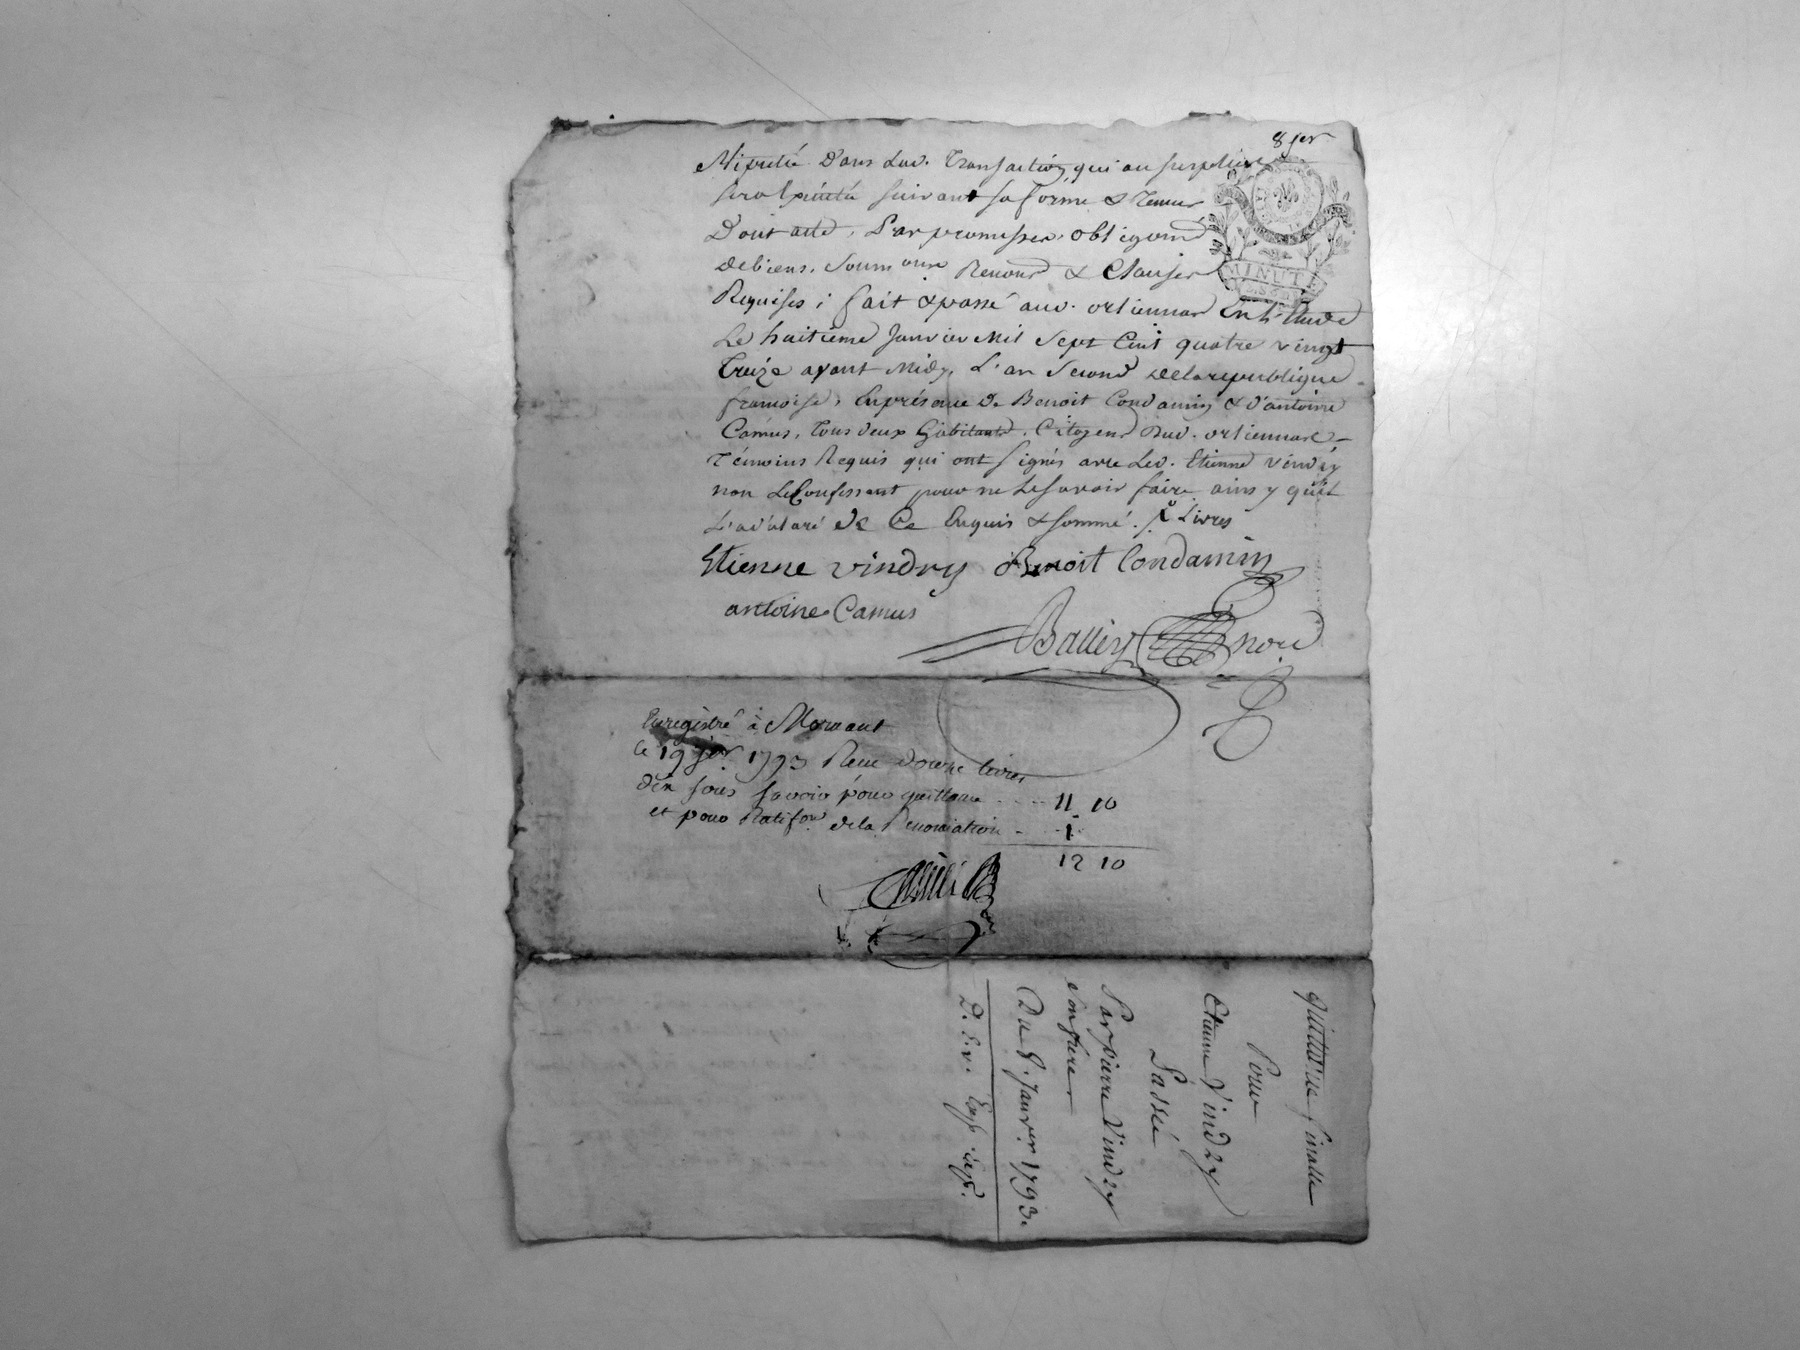 8 jer
stipulée dans lad. Transaction, qui au surplus
sera Exécuté suivant sa forme & Teneur
Dont acte, Par promesses, obligaon
de biens, soumons Renons & Clauses
Requises; fait & passé aud. orlienas En L'Etude
MINUTE
Le huitieme Janvier Mil Sept Cent quatre vingt
Treize avant midy, L'an Second de la republique
francoise, En présence de Benoit Condamin & d'antoine
Camus, tous deux habitants, Citoyens Dud. orlienas
Témoins Requis qui ont signés avec Led. Etienne vindry
non Le Confessant pour ne Le savoir faire ainsy qu'il
L'a déclaré de Ce Enquis & sommé. Livres
Etienne vindry Benoit Condamin
antoine Camus
Balley nore
Enregistré à Mornant
Ce 19 jer 1793 Reçu douze livres
dix sous savoir pour quittance - - - 11 10
et pour Ratifon de la Renonciation - 1
12 10
Quittance finalle
Pour
Etienne Vindry
Passé
Par pierre Vindry
son frere
Du 8. Janver 1793.